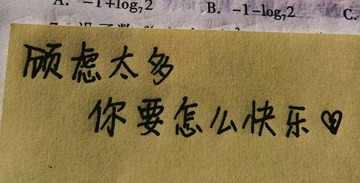 A. -1+log₇2 B. -1-log₇2 C.
顾虑太多
你要怎么快乐♡